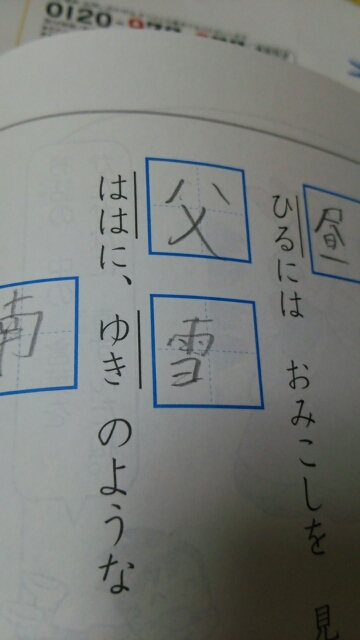 0120
昼
ひるには おみこしを 見
父 雪
ははに、ゆきのような
南